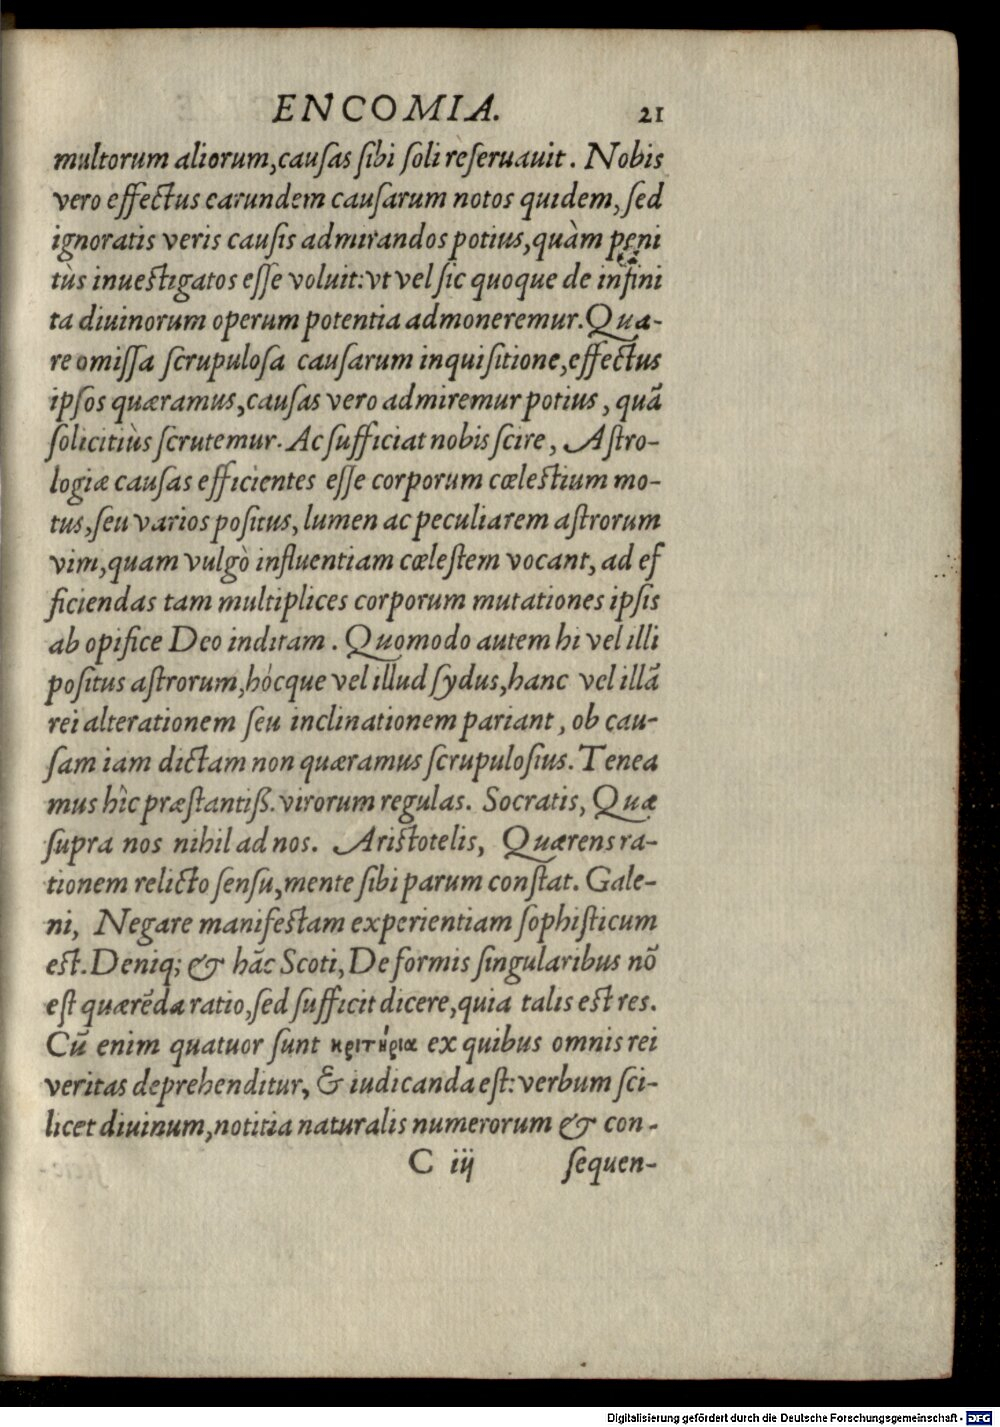 ENCOMIA. 21
multorum aliorum,cauſas ſibi ſoli reſeruauit. Nobis
vero effectus earundem cauſarum notos quidem, ſed
ignoratis veris cauſis admirandos potius,quàm peni
tùs inueſtigatos eſſe voluit:vt vel ſic quoque de infini
ta diuinorum operum potentia admoneremur.Qua-
re omiſſa ſcrupuloſa cauſarum inquiſitione,effectus
ipſos quæramus,cauſas vero admiremur potius, quã
ſolicitiùs ſcrutemur. Ac ſufficiat nobis ſcire, Aſtro-
logiæ cauſas efficientes eſſe corporum cœleſtium mo-
tus,ſeu varios poſitus, lumen ac peculiarem aſtrorum
vim,quam vulgò influentiam cœleſtem vocant, ad ef
ficiendas tam multiplices corporum mutationes ipſis
ab opifice Deo inditam. Quomodo autem hi vel illi
poſitus aſtrorum,hócque vel illud ſydus,hanc vel illã
rei alterationem ſeu inclinationem pariant, ob cau-
ſam iam dictam non quæramus ſcrupuloſius. Tenea
mus hîc præſtantiß. virorum regulas. Socratis, Quæ
ſupra nos nihil ad nos. Ariſtotelis, Quærens ra-
tionem relicto ſenſu,mente ſibi parum conſtat. Gale-
ni, Negare manifeſtam experientiam ſophiſticum
eſt. Deniq; & hãc Scoti, De formis ſingularibus nõ
eſt quærẽda ratio,ſed ſufficit dicere,quia talis eſt res.
Cũ enim quatuor ſunt κριτήρια ex quibus omnis rei
veritas deprehenditur, & iudicanda eſt: verbum ſci-
licet diuinum,notitia naturalis numerorum & con-
C iij ſequen-
Digitalisierung gefördert durch die Deutsche Forschungsgemeinschaft - DFG